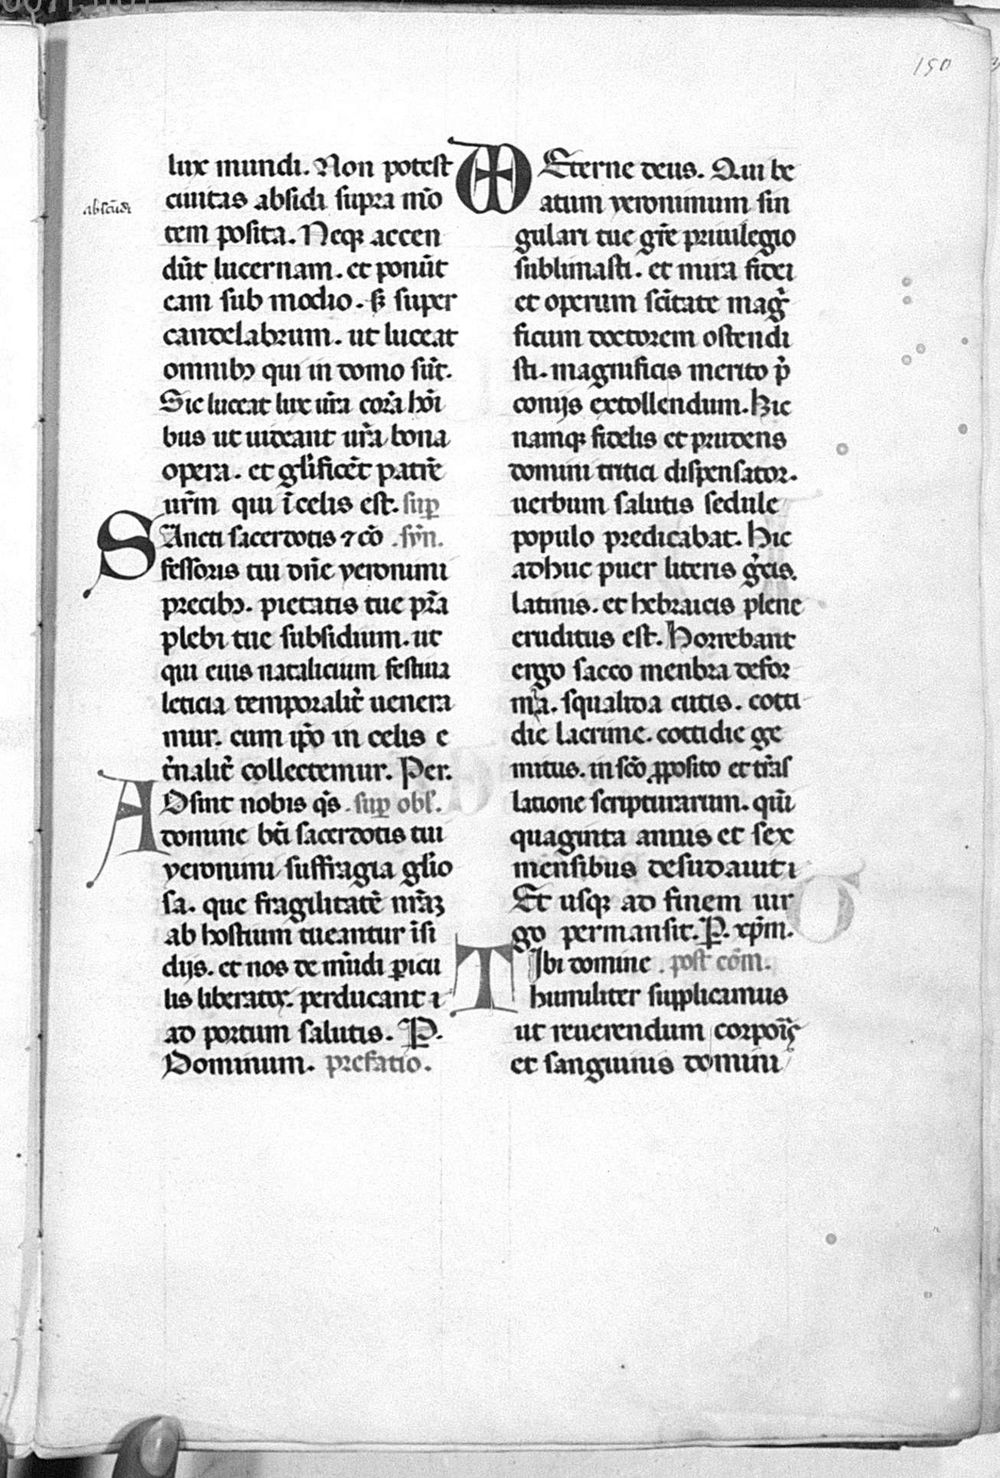 150
lux mundi. Non potest
ciuitas absidi supra mō
abscōdi
tem posita. Neqꝫ accen
dūt lucernam. et ponūt
eam sub modio. sꝫ super
candelabrum. ut luceat
omnibꝫ qui in domo sūt.
Sic luceat lux ur̄a corā hōi
bus ut uideant ur̄a bona
opera. et gl̄ificēt patrē
ur̄m qui ī celis est. sup̄
Sancti sacerdotis ⁊ cō .syn̄.
fessoris tui dn̄e yeronimi
precibꝫ. pietatis tue pr̄a
plebi tue subsidium. ut
qui eius natalicium festiua
leticia temporalit̄ uenera
mur. cum ip̄o in celis e
t̄nalit̄ collectemur. Per.
Adsint nobis qs̄ .sup̄ obl̄.
domine bt̄i sacerdotis tui
yeronimi suffragia gl̄io
sa. que fragilitatē nr̄aꝫ
ab hostium tueantur īsi
diis. et nos de mūdi ꝑicu
lis liberatoꝝ. perducant
ad portum salutis. P.
Dominum. prefatio.
Eterne deus. Qui be
atum yeronimum sin
gulari tue gr̄e priuilegio
sublimasti. et mira fidei
et operum sc̄itate maḡ
ficum doctorem ostendi
sti. magnificis merito p̄
coniis extollendum. Hic
namqꝫ fidelis et prudens
domini tritici dispensator.
uerbum salutis sedule
populo predicabat. Hic
adhuc puer literis gr̄cis.
latinis. et hebraicis plene
eruditus est. Horrebant
ergo sacco menbra defor
mia. squalida cutis. cotti
die lacrime. cottidie ge
mitus. in sc̄o ꝓposito et trās
latione scripturarum. qūi
quaginta annis et sex
mensibus desudauit
Et usqꝫ ad finem uir
go permansit. P. xp̄m.
Tibi domine . post com̄.
humiliter supplicamus
ut reuerendum corporis
et sanguinis domini